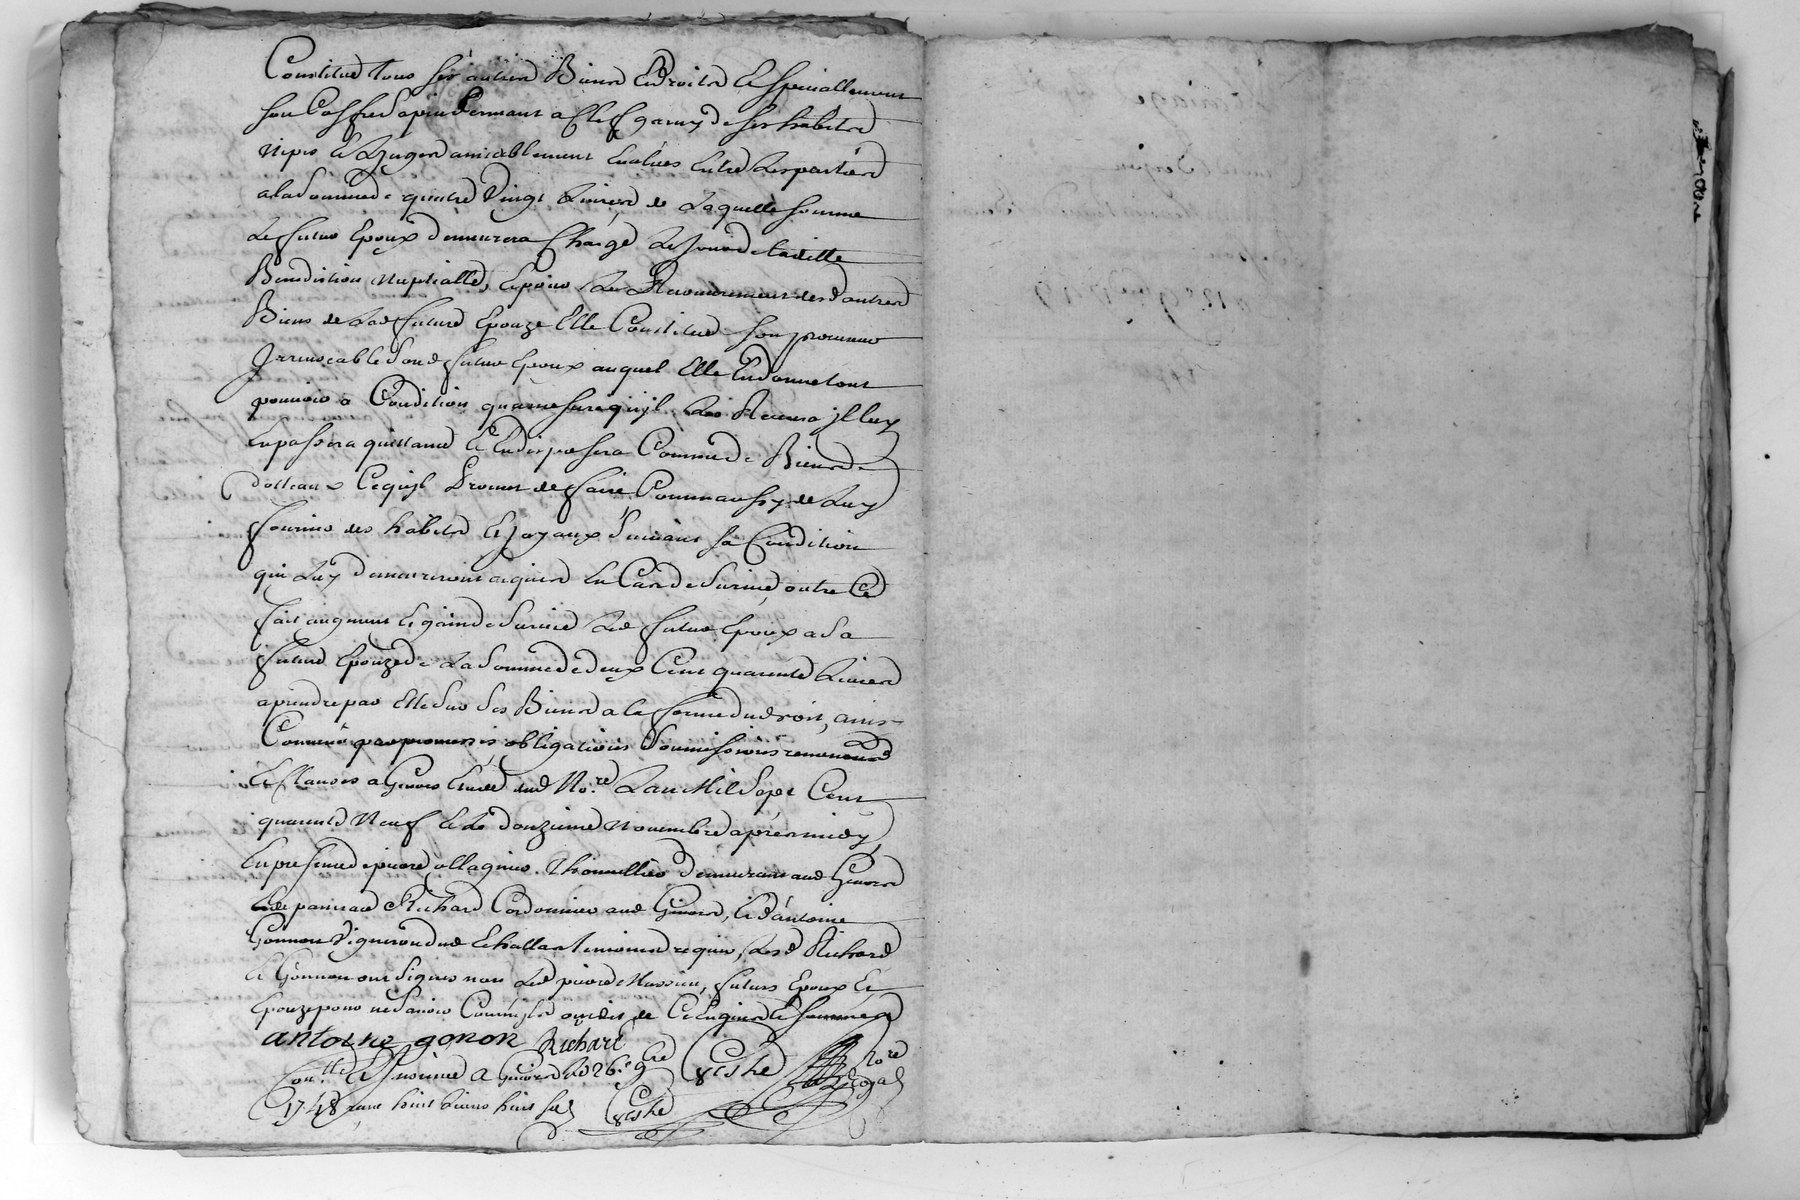 Constitue tous ses autres Biens Et droits Et speciallement
son Coffre sapin fermant a Clef garny de ses habits
nipes Et linges amiablement Evalués Entre les parties
a la somme de quatre vingt livres de laquelle somme
le futur Epoux demeurera Chargé le jour de la ditte
Benediction nuptialle, Et pour le Recouvrement des d autres
Biens de lad future Epouze Elle Constitue son procureur
Irrevocable sond futur Epoux auquel Elle En donne tout
pouvoir a Condition qu'a mesure qu'jl les Recevra jl luy
En passera quittance Et En disposera Comme de Biens
dottaux Ce qu'jl Promet de faire Comme aussy de luy
fournir des habits Et joyaux suivant sa Condition
qui luy demeureront acquis En Cas de survie, outre Ce
fait augment Et gain de survie led futur Epoux a sa
future Epouze de la somme de deux Cent quarente livres
a prendre par Elle sur ses Biens a la forme du droit, ainsi
Comme par promesses obligations soumissions renonces
Et Clauses a Givors Etude dud No.re l'an Mil Sept Cent
quarente Neuf Et le douzieme Novembre après midy
En presence de pierre demeurant aud Givors
Richard Cordonnier aud Givors, Et d'antoine
Gonnon Vigneron dud Echallas temoins requis, lesd Richard
Et Gonnon ont signés non led pierre futurs Epoux Et
Epouze pour ne scavoir Comme jls ont dit de Ce Enquis Et sommés
antoine gonon Richard
Con.lle Et Insinué a Givors le 26.e 9bre
1748 huit livres huit sols
No.re
Royal